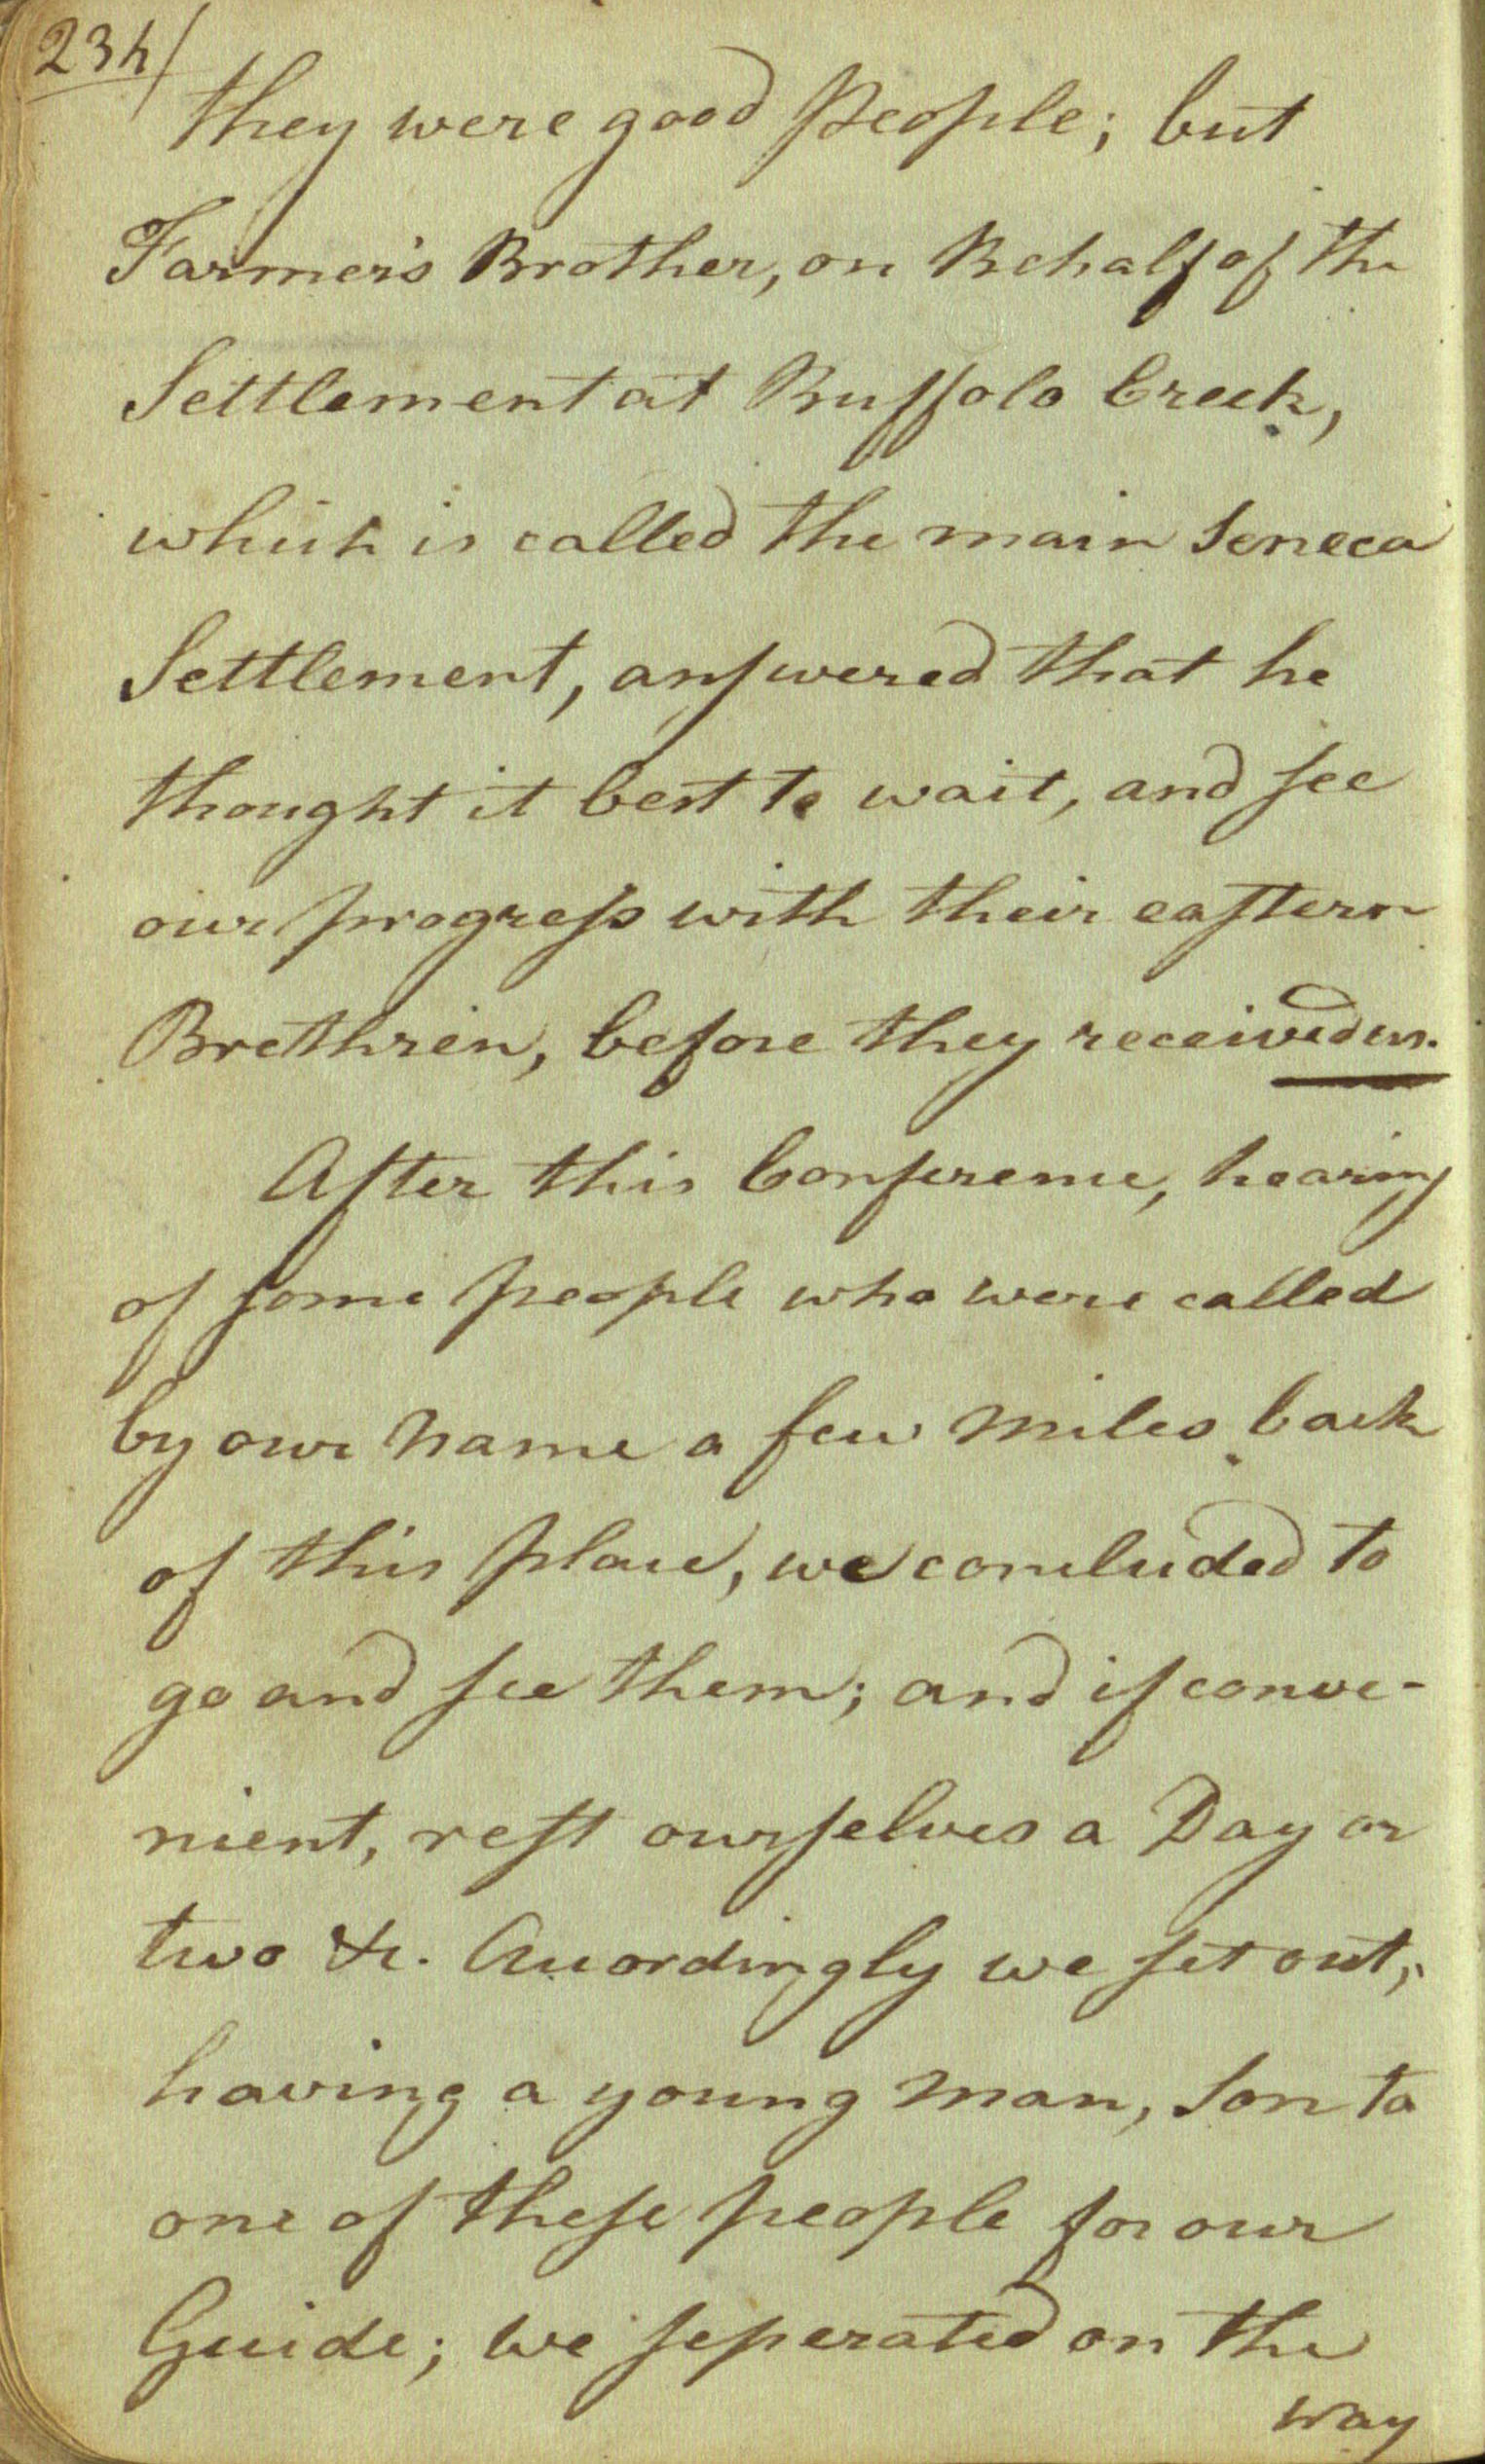 234/
they were good People; but
Farmer's Brother, on Behalf of the
Settlement at Buffolo Creek,
which is called the main Seneca
Settlement, anſwered that he
thought it best to wait, and ſee
our progreſs with their eaſtern
Brethren, before they received us.
After this Conference, hearing
of ſome people who were called
by our Name a few Miles back
of this place, we concluded to
go and ſee them; and if conve-
nient, reſt ourſelves a Day or
two &c. Accordingly we ſet out,
having a young Man, Son to
one of theſe people for our
Guide; we ſeperated on the
way